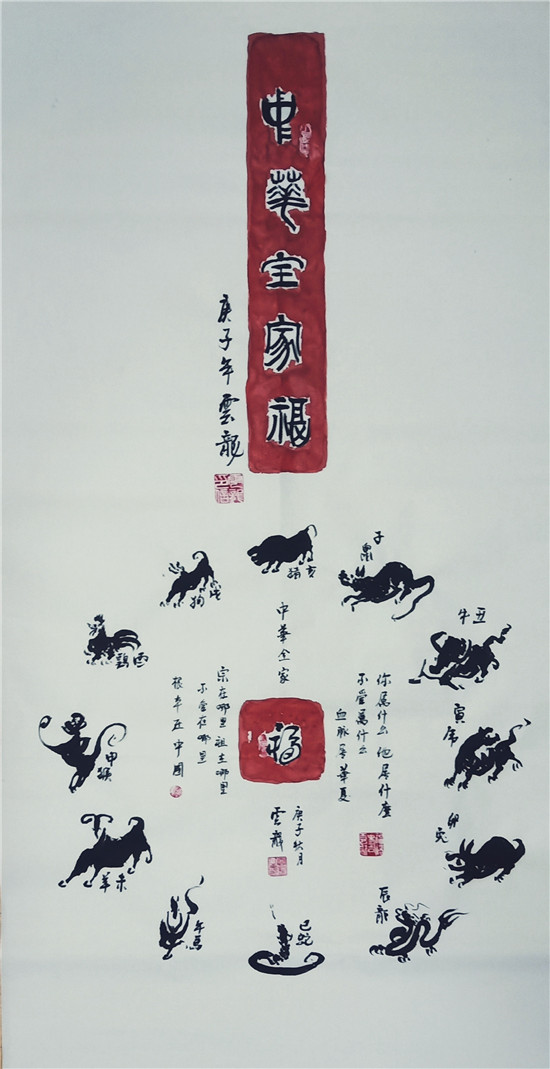 中華全家福
庚子年雲龍
子鼠
丑牛
寅虎
卯兔
辰龍
巳蛇
午馬
未羊
申猴
酉鷄
戌狗
亥猪
中華全家
福
你属什么他属什麽
不管属什么
血脉華夏
宗在哪里祖在哪里
不管在哪里
根本在中國
庚子月
雲龍